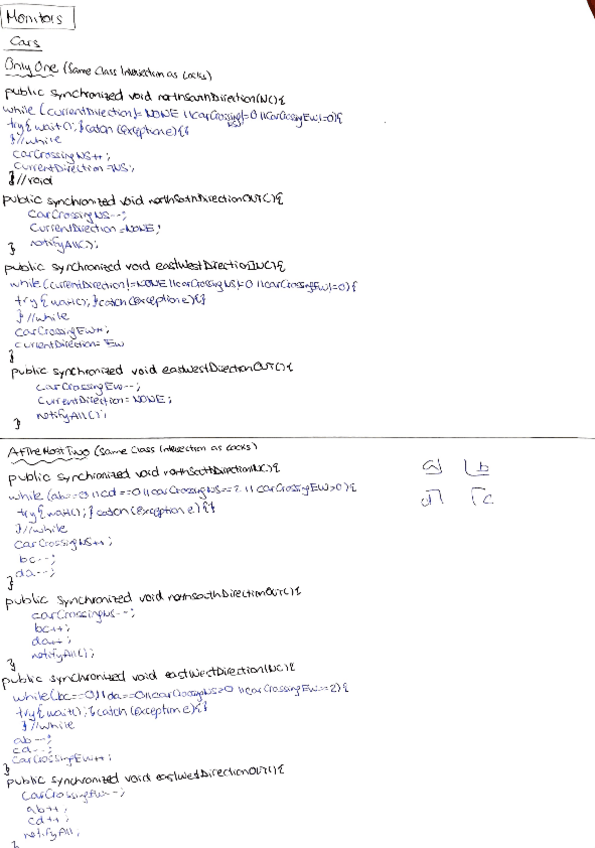 Monitors
Cars
Only One (Same Class Intersection as Locks)
public synchronized void northSouthDirectionIN(){
while (currentDirection != NONE || carCrossingNS != 0 || carCrossingEW != 0){
try{ wait(); } catch (Exception e){}
} //while
carCrossingNS++;
currentDirection = NS;
} //void
public synchronized void northSouthDirectionOUT(){
carCrossingNS--;
currentDirection = NONE;
notifyAll();
}
public synchronized void eastWestDirectionIN(){
while (currentDirection != NONE || carCrossingNS != 0 || carCrossingEW != 0){
try{ wait(); } catch (Exception e){}
} //while
carCrossingEW++;
currentDirection = EW
}
public synchronized void eastWestDirectionOUT(){
carCrossingEW--;
currentDirection = NONE;
notifyAll();
}
At The Most Two (Same Class Intersection as Locks)
a b
d c
public synchronized void northSouthDirectionIN(){
while (ab==0 || cd==0 || carCrossingNS==2 || carCrossingEW>0){
try{ wait(); } catch (Exception e){}
} //while
carCrossingNS++;
bc--;
da--;
}
public synchronized void northSouthDirectionOUT(){
carCrossingNS--;
bc++;
da++;
notifyAll();
}
public synchronized void eastWestDirectionIN(){
while (bc==0 || da==0 || carCrossingNS>0 || carCrossingEW==2){
try{ wait(); } catch (Exception e){}
} //while
ab--;
cd--;
carCrossingEW++;
}
public synchronized void eastWestDirectionOUT(){
carCrossingEW--;
ab++;
cd++;
notifyAll;
}